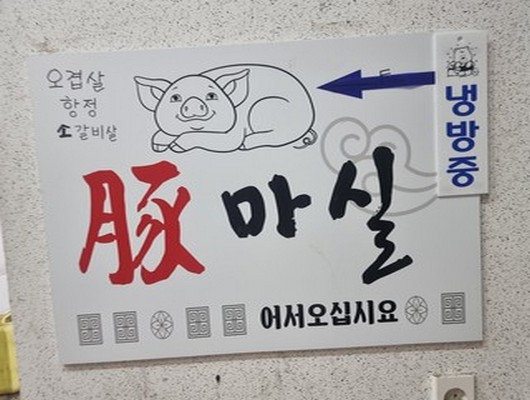 오겹살
항정
소갈비살
냉방중
豚마실
어서오십시요